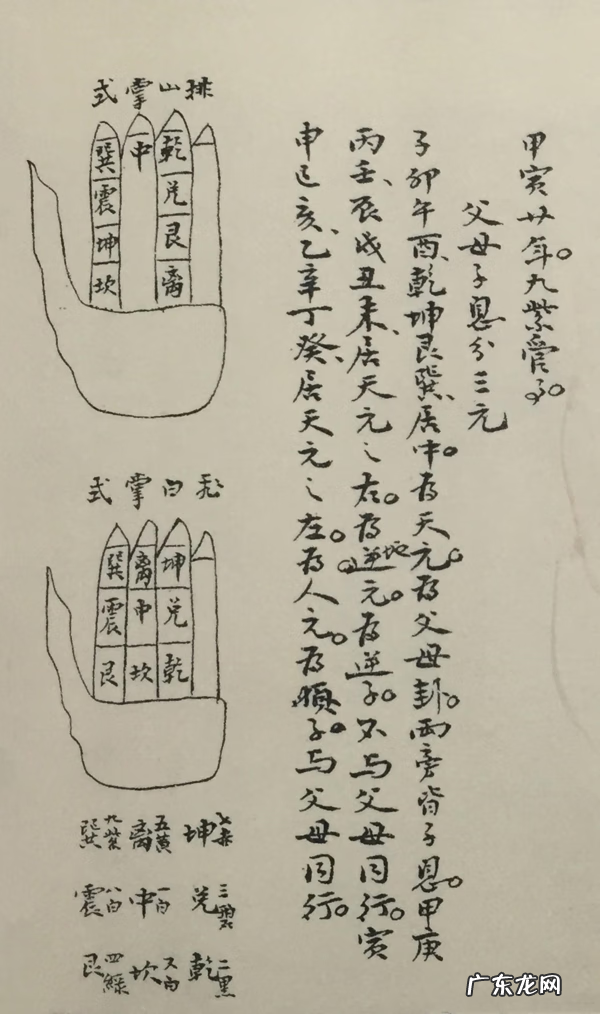 甲寅廿年。九紫管
父母子息分三元
子卯午酉、乾坤艮巽、居中。为天元。为父母卦。两旁皆子息。甲庚
丙壬、辰戌丑未、居天元之右。为地元。为逆子。不与父母同行。寅
申巳亥、乙辛丁癸、居天元之左。为人元。为順子。与父母同行。
排山掌式
乾兑艮离
中
巽震坤坎
飛白掌式
坤兑乾
离中坎
巽震艮
坤七赤 离五黄 巽九紫
兑三碧 中一白 震八白
乾二黑 坎六白 艮四綠
广东龙网